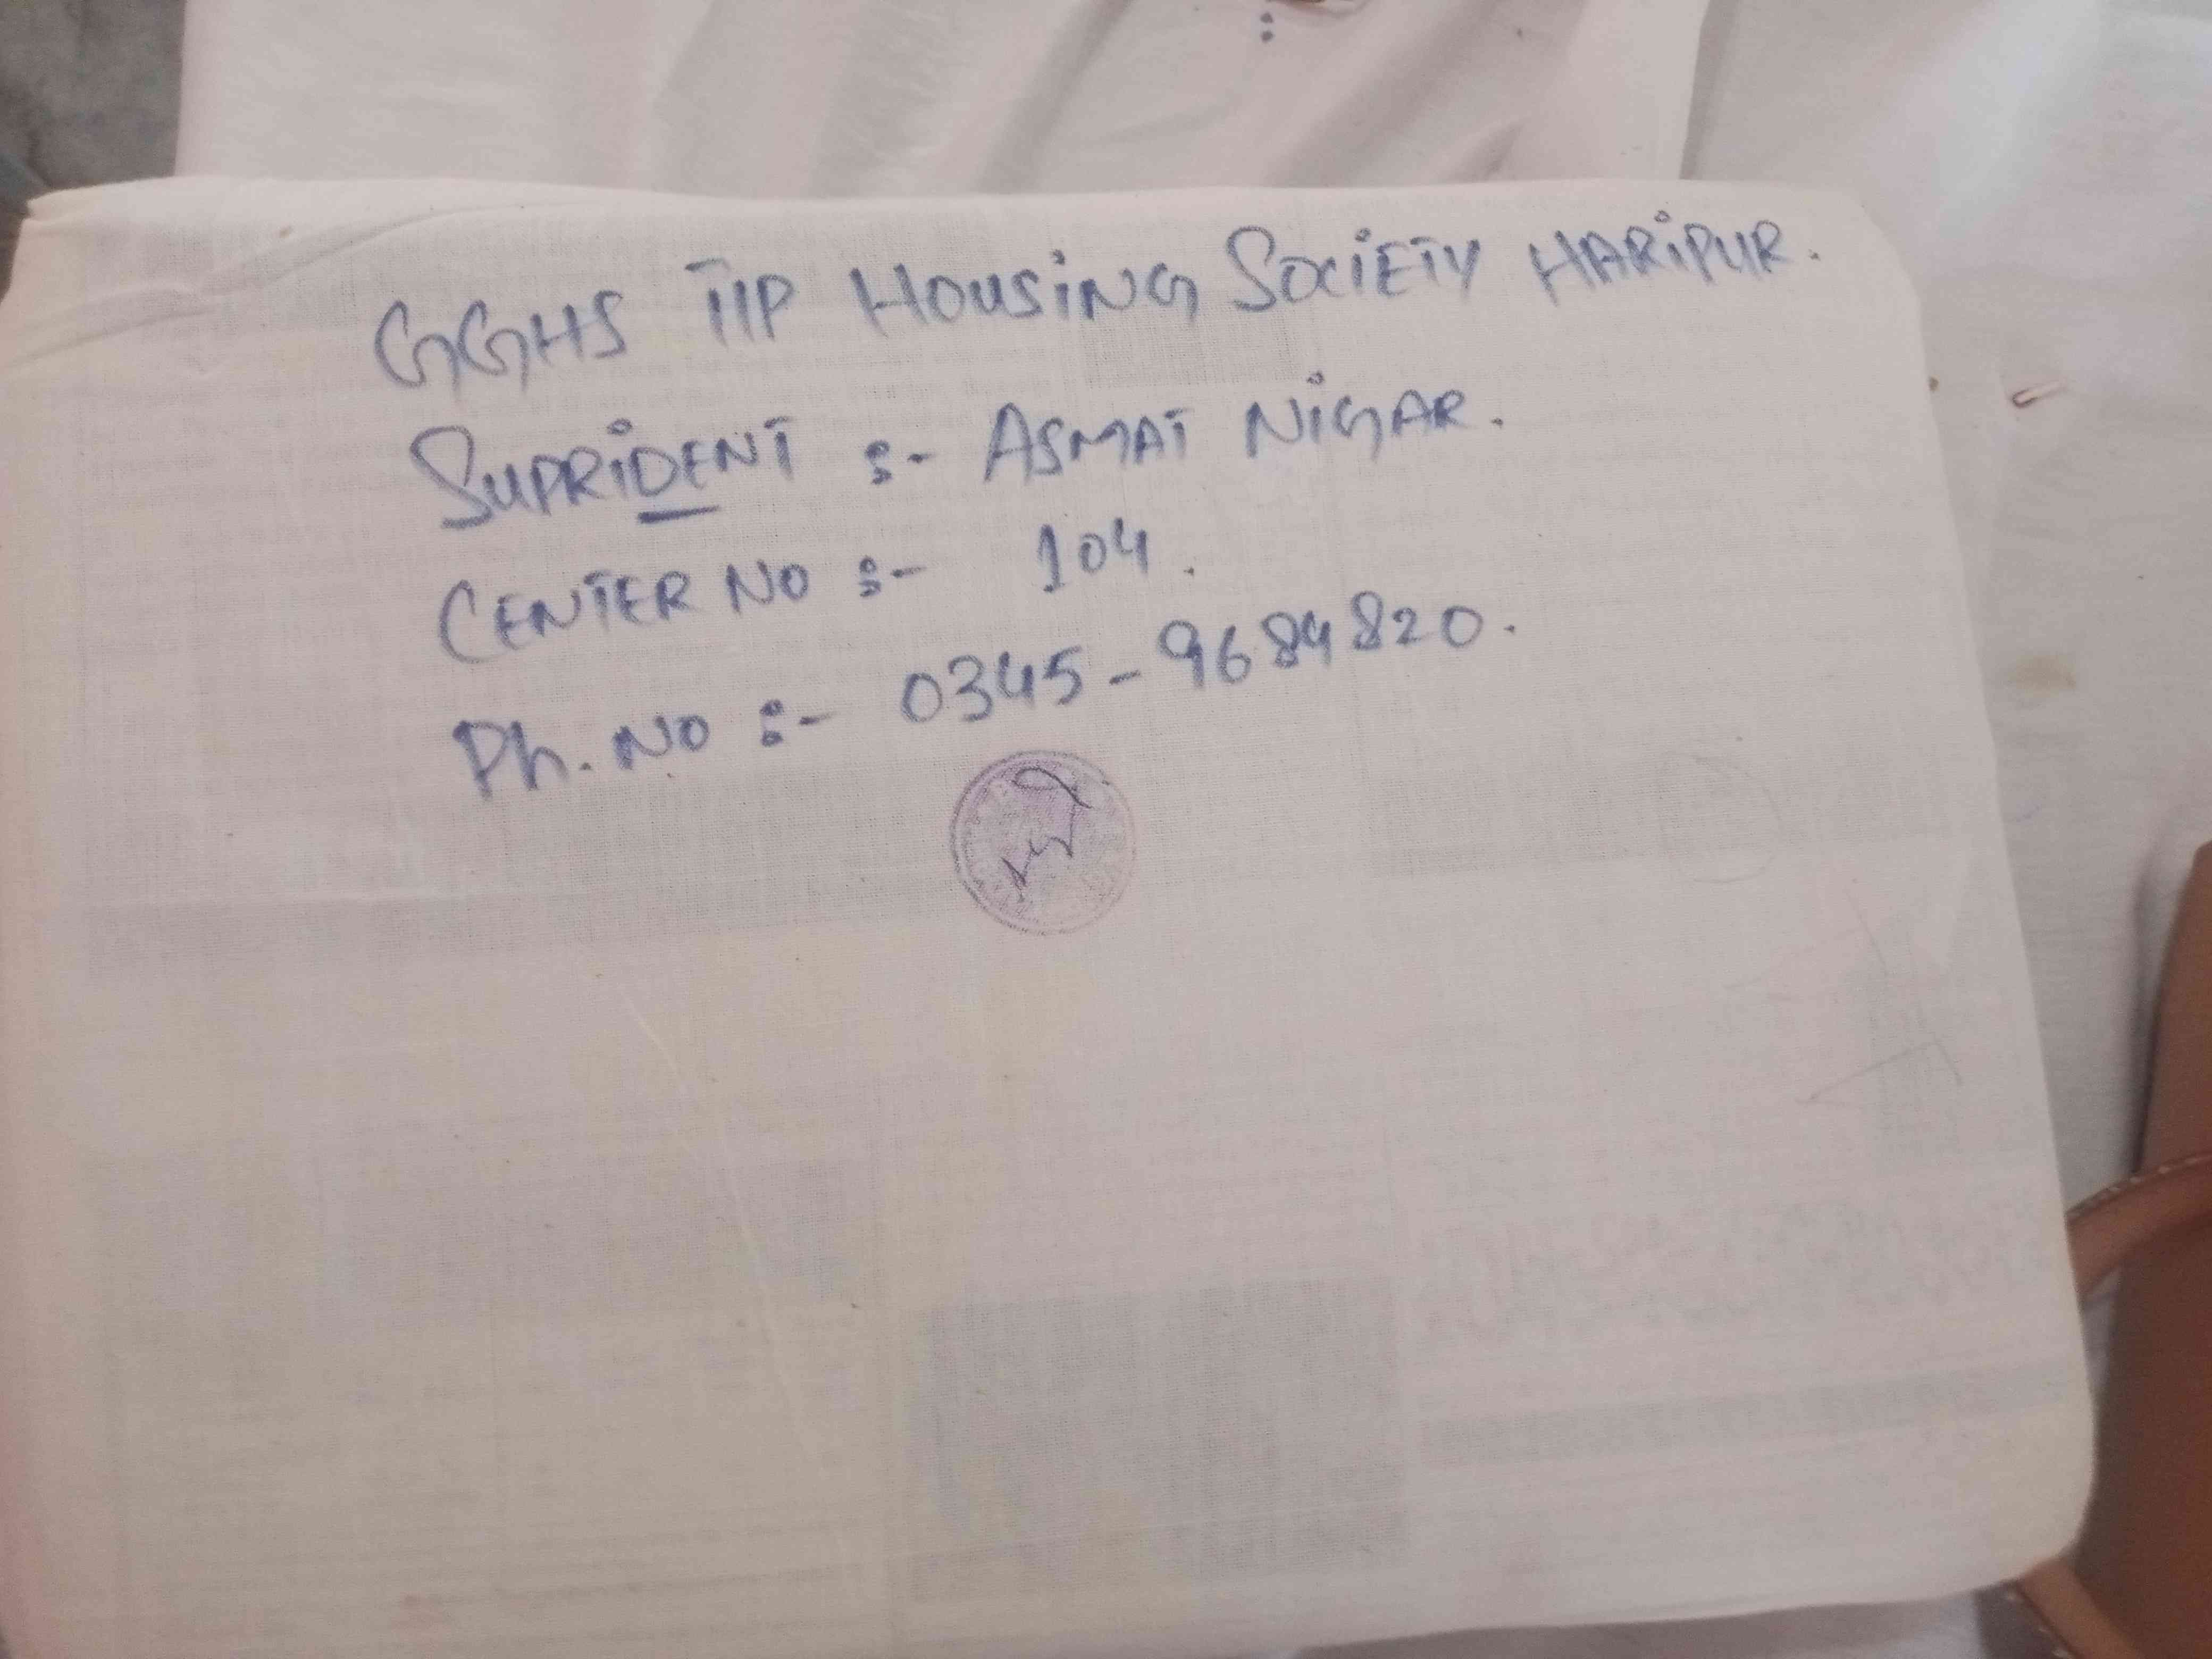 GGHS TIP HOUSING SOCIETY HARIPUR.
SUPRIDENT :- ASMAT NIGAR.
CENTER NO :- 104.
Ph. NO :- 0345-9684820.